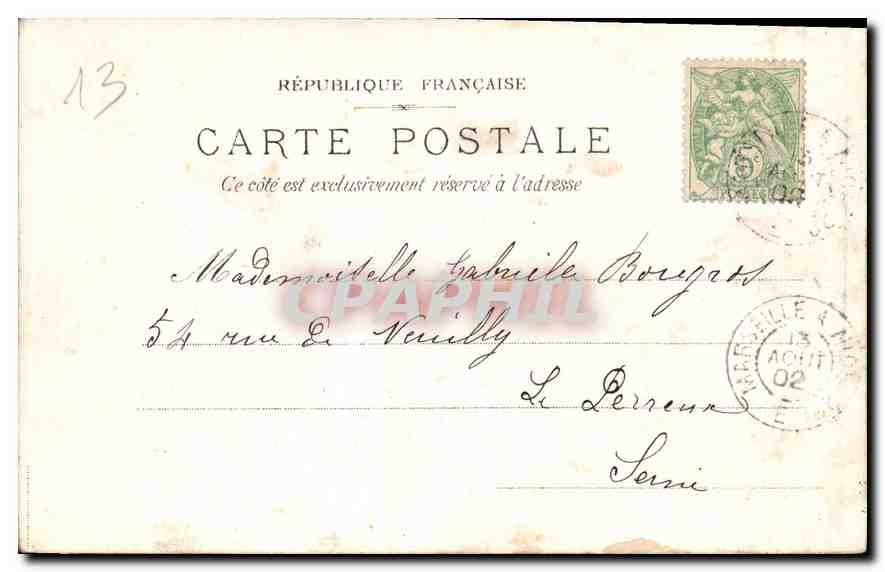 13
RÉPUBLIQUE FRANÇAISE
CARTE POSTALE
Ce côté est exclusivement réservé à l'adresse
Mademoiselle Gabrielle Bougros
54 rue de Neuilly
Le Perreux
Seine
CPAPHIL
5
MARSEILLE A
13
AOUT
02